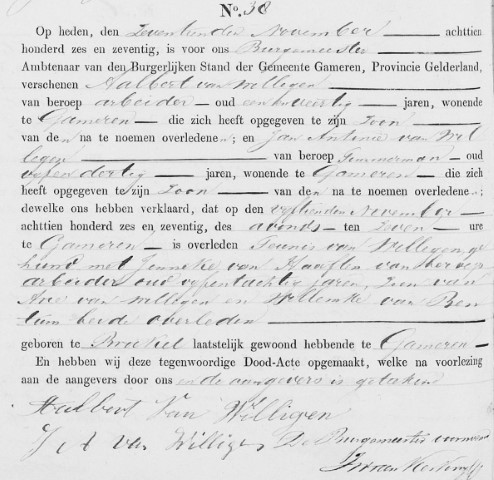 No. 38
Op heden, den zeventienden November achttien
honderd zes en zeventig, is voor ons Burgemeester
Ambtenaar van den Burgerlijken Stand der Gemeente Gameren, Provincie Gelderland,
verschenen Aalbert van Willigen
van beroep arbeider oud een en veertig jaren, wonende
te Gameren die zich heeft opgegeven te zijn Zoon
van den na te noemen overledene; en Jan Antonie van Wil
ligen van beroep Timmerman oud
vijf en dertig jaren, wonende te Gameren die zich
heeft opgegeven te zijn Zoon van den na te noemen overledene;
dewelke ons hebben verklaard, dat op den vijftienden November
achttien honderd zes en zeventig, des avonds ten Zeven ure
te Gameren is overleden Teunis van Willigen, ge
huwd met Jenneke van Haaften van beroep
arbeider oud vijf en tachtig jaren, Zoon van
Arie van Willigen en Willemke van Ben
tum beide overleden
geboren te Broekel laatstelijk gewoond hebbende te Gameren
En hebben wij deze tegenwoordige Dood-Acte opgemaakt, welke na voorlezing
aan de aangevers door ons en de aangevers is getekend
Aalbert Van Willigen
J A van Willigen De Burgemeester voornoemd